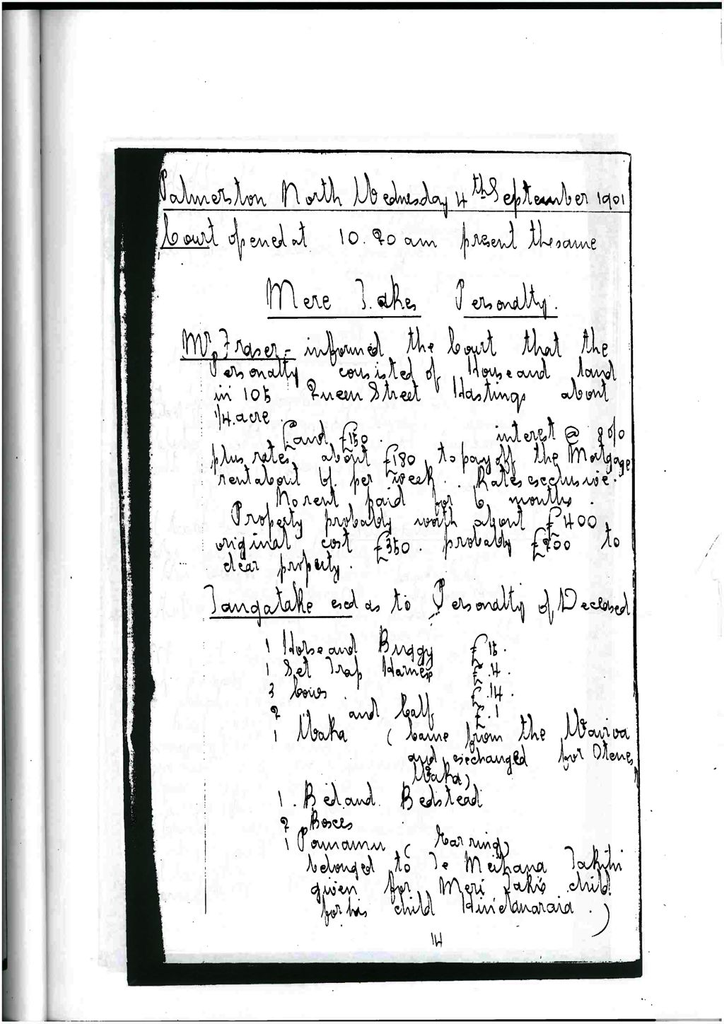 Palmerston North Wednesday 4th September 1901
Court opened at 10.20 am present the same
Mere Takes Personalty.
Mr Fraser - informed the Court that the
Personalty consisted of House and land
in 105 Queen Street Hastings about
1/4 acre.
Land £150. interest @ 8 %
plus rates about £180 to pay off the Mortgage
rent about 6/ per week. Rates exclusive.
No rent paid for 6 months.
Property probably worth about £400
original cost £350. probably £200 to
clear property.
Tangatake exd as to Personalty of Deceased
1 Horse and Buggy £15.
1 Set Trap Harness £4.
3 Cows £14.
2 and Calf £1
1 Waka (Came from the
and exchanged for
Waka)
1. Bed and Bedstead
2 Boxes
1 Pounamu (Earring)
belonged to Te Meihana Takihi
given for Meri Takes child
for his child .)
14